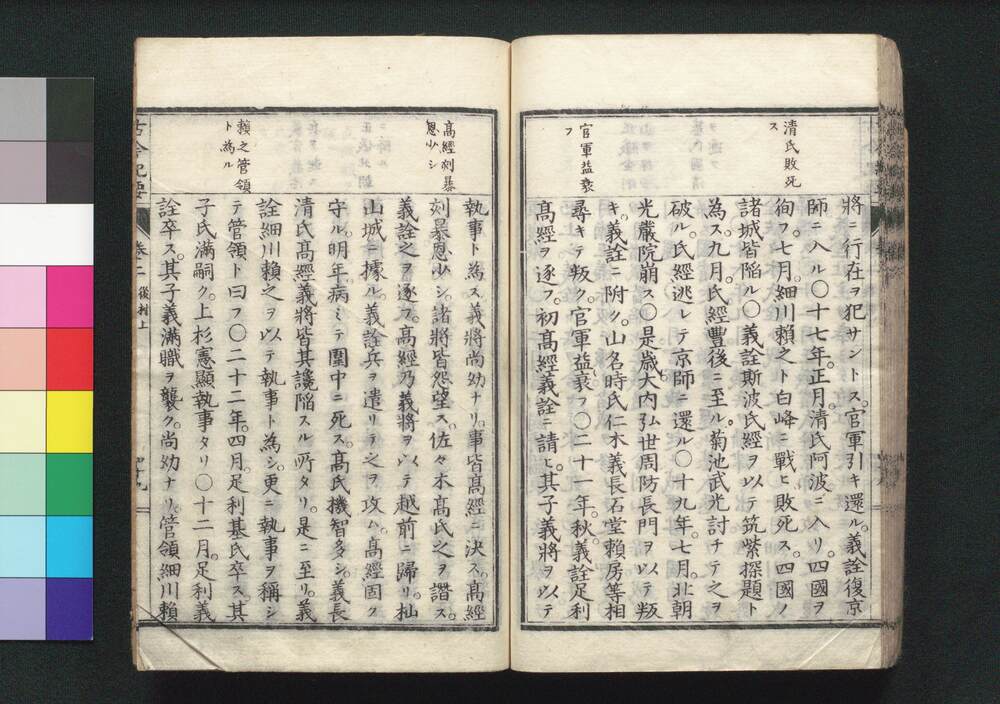 清氏敗死
ス
官軍益衰
フ
將ニ行在ヲ犯サントス。官軍引キ還ル。義詮復京
師ニ入ル〇十七年。正月。清氏阿波ニ入リ。四國ヲ
徇フ。七月。細川賴之ト白峰ニ戰ヒ敗死ス。四國ノ
諸城皆陷ル〇義詮斯波氏經ヲ以テ筑紫探題ト
為ス。九月。氏經豐後ニ至ル。菊池武光討チテ之ヲ
破ル。氏經逃レテ京師ニ還ル〇十九年。七月。北朝
光嚴院崩ス〇是歲。大内弘世周防長門ヲ以テ叛
キ。義詮ニ附ク。山名時氏仁木義長石堂賴房等相
尋キテ叛ク。官軍益衰フ〇二十一年。秋。義詮足利
高經ヲ逐フ。初高經義詮ニ請ヒ。其子義將ヲ以テ
高經刻暴
恩少シ
賴之管領
ト為ル
執事ト為ス。義將尚幼ナリ。事皆高經ニ決ス。高經
刻暴恩少シ。諸將皆怨望ス。佐々木高氏之ヲ譖ス。
義詮之ヲ逐フ。高經乃義將ヲ以テ越前ニ歸リ。杣
山城ニ據ル。義詮兵ヲ遣リテ之ヲ攻ム。高經固ク
守ル。明年。病ミテ圍中ニ死ス。高氏機智多シ。義長
清氏高經義將皆其讒陷スル所タリ。是ニ至リ。義
詮細川賴之ヲ以テ執事ト為シ。更ニ執事ヲ稱シ
テ管領ト曰フ〇二十二年。四月。足利基氏卒ス。其
子氏滿嗣ク。上杉憲顯執事タリ〇十二月。足利義
詮卒ス。其子義滿職ヲ襲ク。尚幼ナリ。管領細川賴
古今紀要
卷二 後村上
四十九